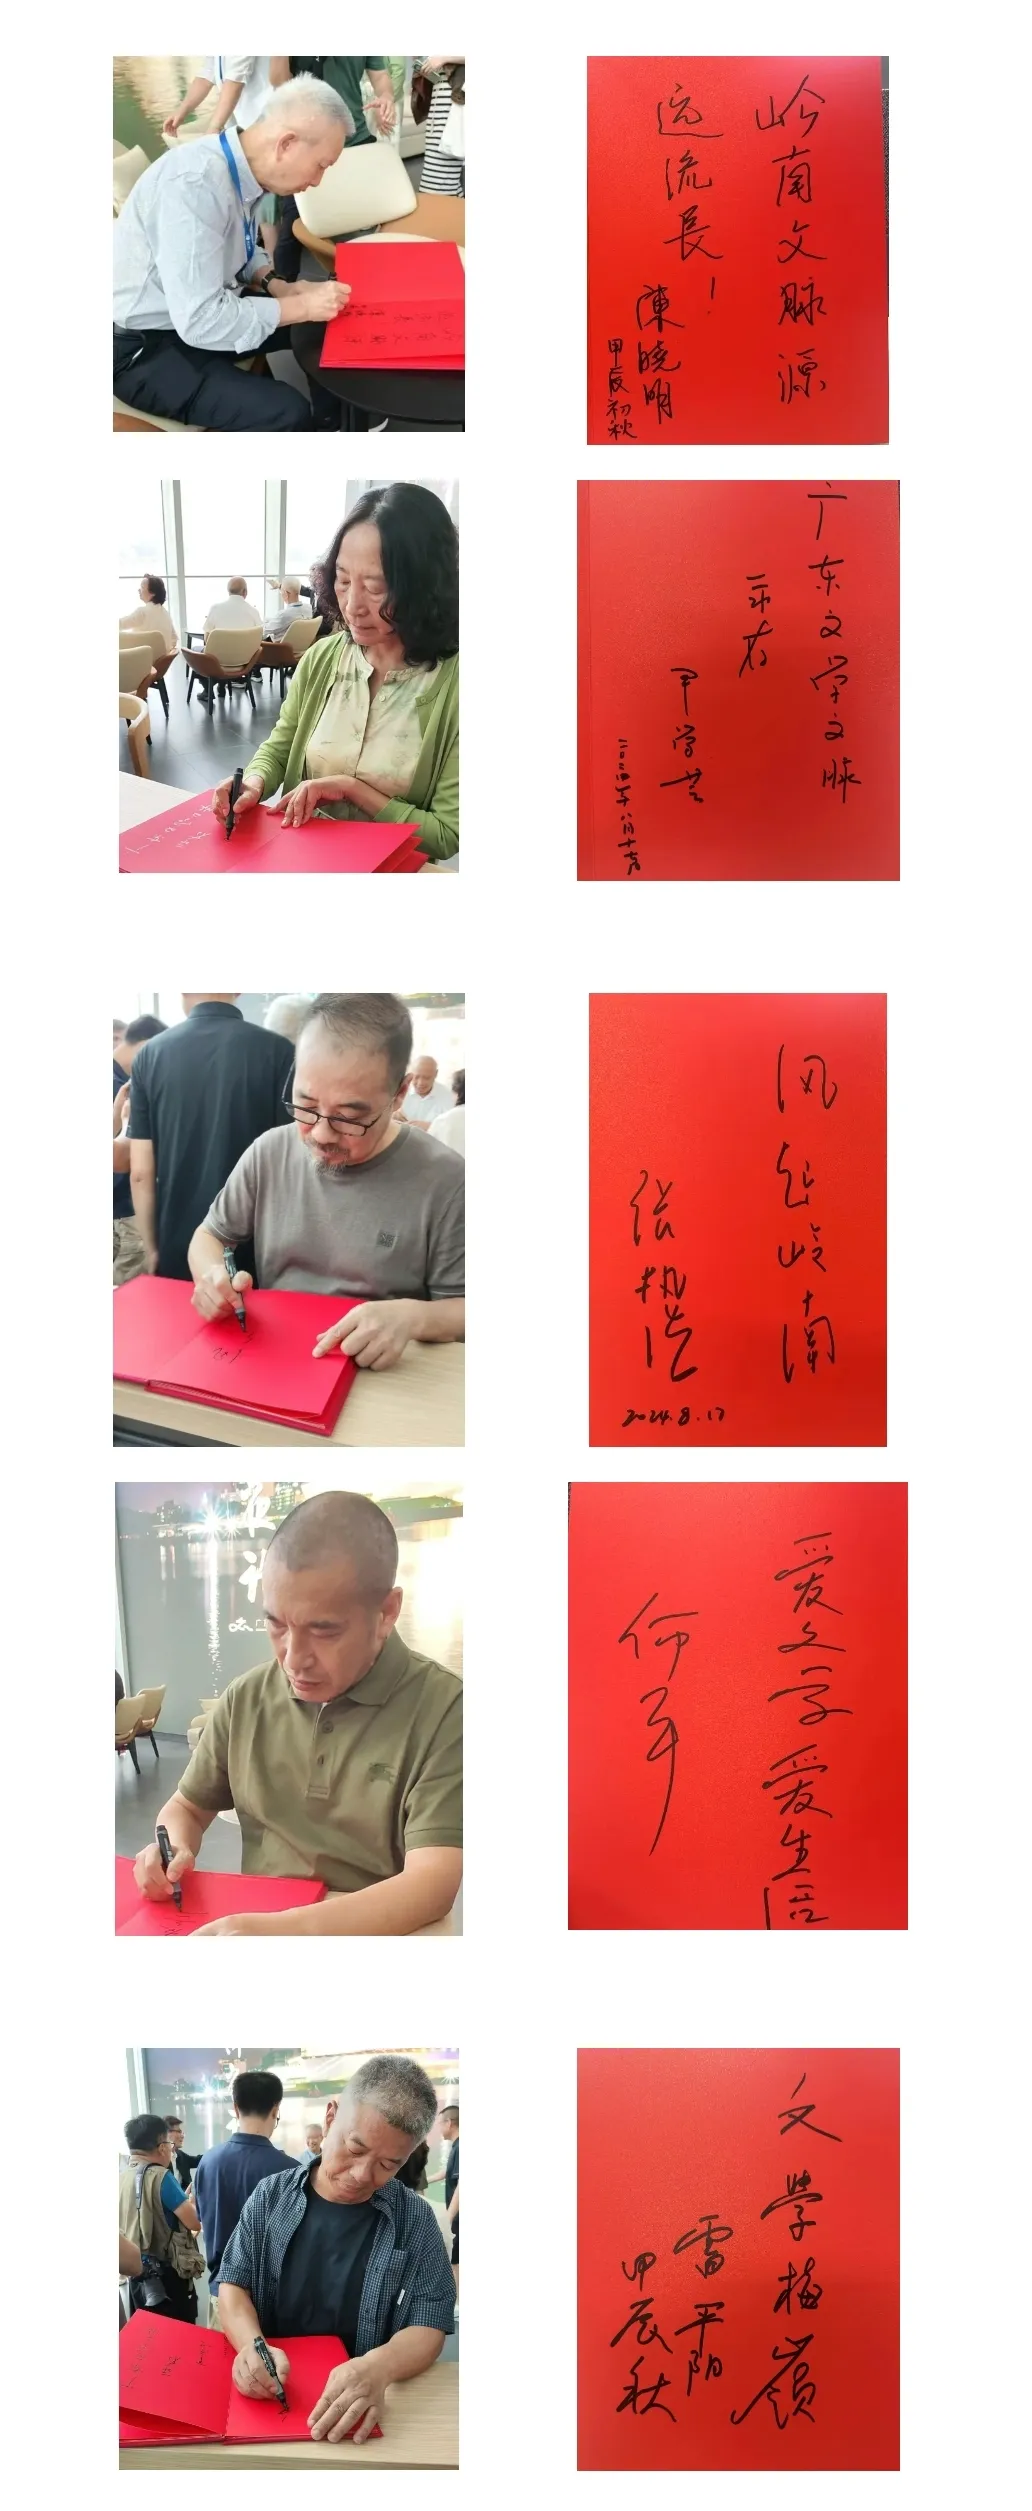 岭南文脉源
远流長！
陳曉明
甲辰初秋
广东文学文脉
永存
申霞艳
二〇二四年八月十七日
风起岭南
张执浩
2024.8.17
爱文字爱生活
何平
文學梅嶺
雷平阳
甲辰秋